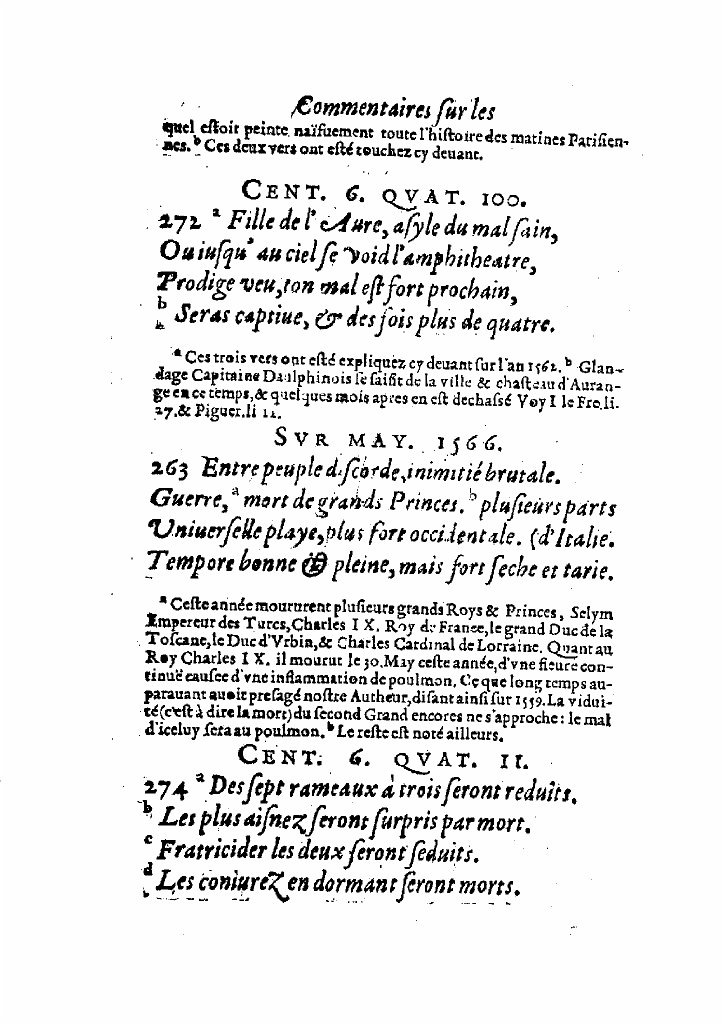 Commentaires sur les
quel estoit peinte naïfuement toute l'histoire des matines Parisien-
nes. b Ces deux vers ont esté touchez cy deuant.
CENT. 6. QVAT. 100.
272 a Fille de l'Aure, asyle du mal sain,
Ou iusqu' au ciel se void l'amphitheatre,
Prodige veu, ton mal est fort prochain,
b Seras captiue, & des fois plus de quatre.
a Ces trois vers ont esté expliquez cy deuant sur l'an 1562. b Glan-
dage Capitaine Daulphinois se saisit de la ville & chasteau d'Auran-
ge en ce temps, & quelques mois apres en est dechassé Voy I le Fre. li.
27. & Piguer. li 11.
SVR MAY. 1566.
263 Entre peuple discorde, inimitié brutale.
Guerre, a mort de grands Princes. b plusieurs parts
Vniuerselle playe, plus fort occidentale. (d'Italie.
Tempore bonne & pleine, mais fort seche et tarie.
a Ceste année moururent plusieurs grands Roys & Princes, Selym
Empereur des Turcs, Charles IX. Roy de France, le grand Duc de la
Toscane, le Duc d'Vrbin, & Charles Cardinal de Lorraine. Quant au
Roy Charles IX. il mourut le 30. May ceste année, d'vne fieure con-
tinuë causee d'vne inflammation de poulmon. Ce que long temps au-
parauant auoit presagé nostre Autheur, disant ainsi sur 1559. La vidui-
té (c'est à dire la mort) du second Grand encores ne s'approche: le mal
d'iceluy sera au poulmon. b Le reste est noté ailleurs.
CENT. 6. QVAT. 11.
274 a Des sept rameaux à trois seront reduits.
b Les plus aisnez seront surpris par mort.
c Fratricider les deux seront seduits.
d Les coniurez en dormant seront morts.